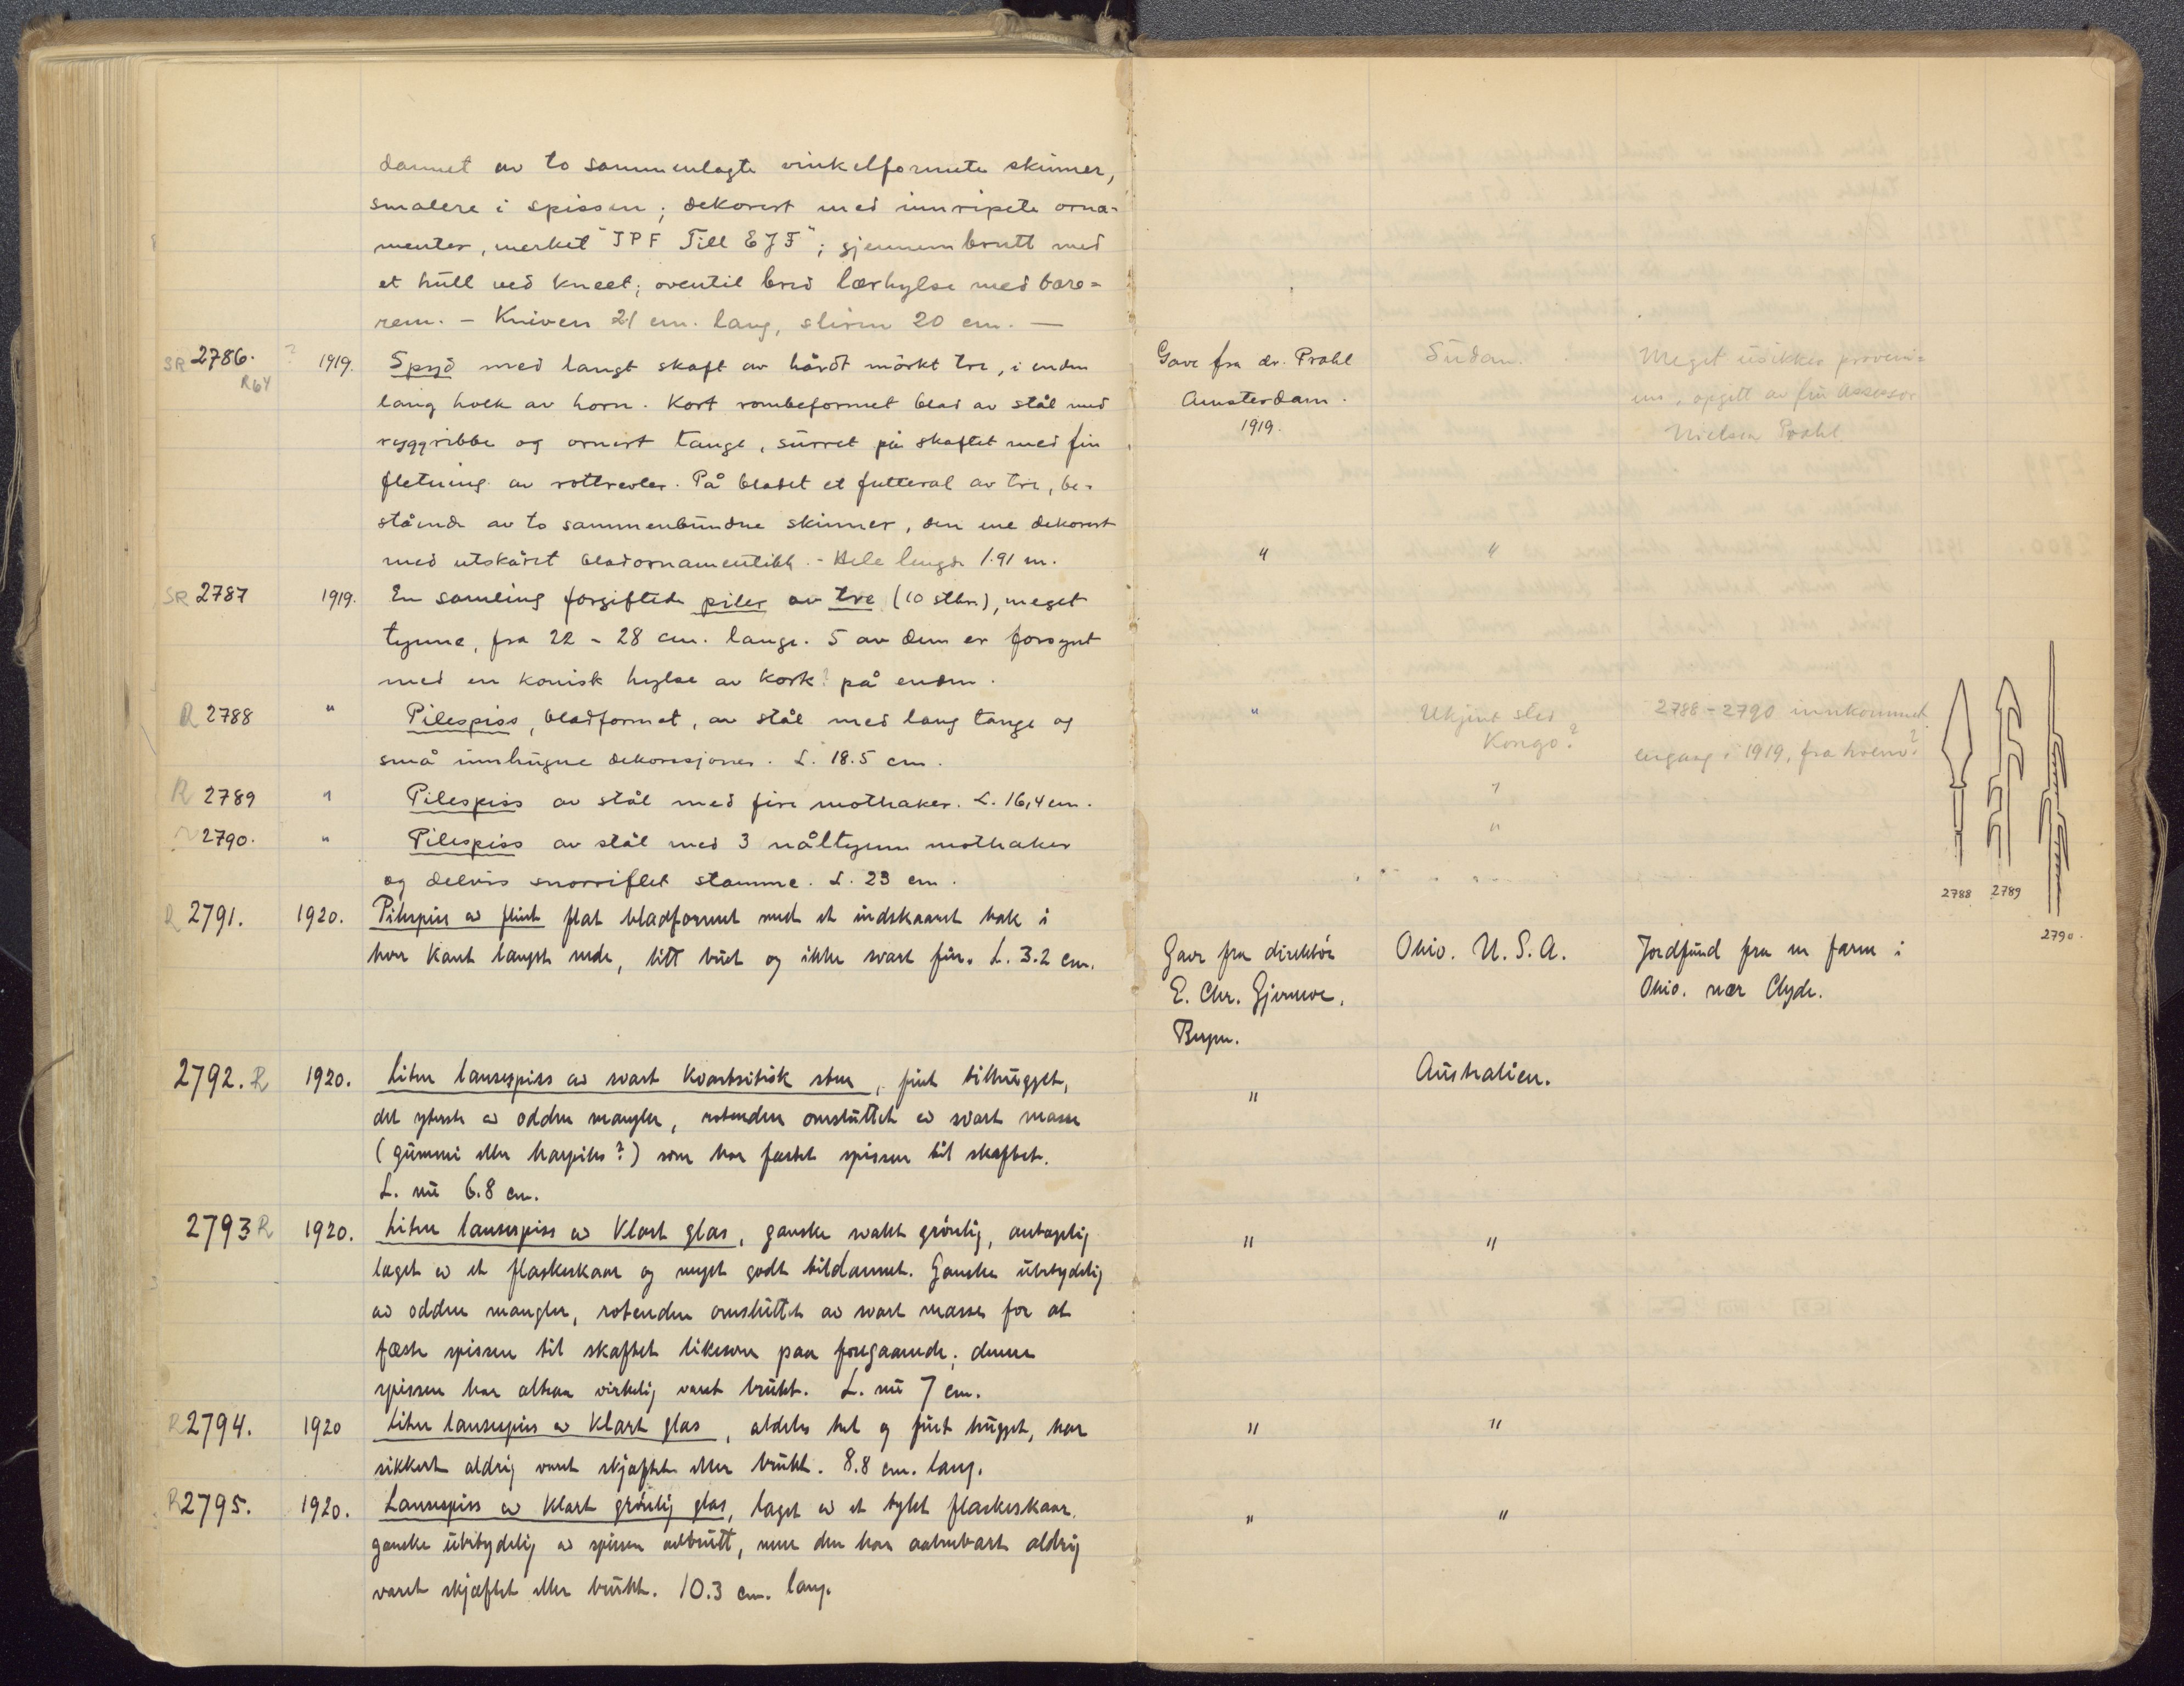 dannet av to sammenlagte vinkelformete skinner,
smalere i spissen; dekorert med innripete orna-
menter, merket "JPF Till EJF"; gjennembrutt med
et hull ved kneet; oventil bred lærhylse med bære-
rem. - Kniven 21 cm. lang, sliren 20 cm. —
SR 2786. R64 ? 1919. Spyd med langt skaft av hårdt mörkt tre, i enden
lang holk av horn. Kort rombeformet blad av stål med
ryggribbe og ornert tange, surret på skaftet med fin
fletning av rottrevler. På bladet et futteral av tre, be-
stående av to sammenbundne skinner, den ene dekorert
med utskåret bladornamentikk. - Hele lengde 1.91 m.
SR 2787 1919. En samling forgiftede piler av tre (10 stkr), meget
tynne, fra 22 - 28 cm. lange. 5 av dem er forsynt
med en konisk hylse av kork? på enden.
R 2788 " Pilespiss, bladformet, av stål med lang tange og
små innhugne dekorasjoner. L. 18.5 cm.
R 2789 " Pilespiss av stål med fire mothaker. L. 16,4 cm.
R 2790. " Pilespiss av stål med 3 nåltynne mothaker
og delvis snorriflet stamme. L. 23 cm.
R 2791. 1920. Pilespiss av flint flat bladformet med et indskaaret hak i
hver kant længst nede, litt buet og ikke svært fin. L. 3.2 cm.
2792. R 1920. Liten lansespiss av svart kvartsitisk sten, fint tilhugget,
det yterste av odden mangler, rotenden omsluttet av svart masse
(gummi eller harpiks?) som har fæstet spissen til skaftet.
L. nu 6.8 cm.
2793 R 1920. Liten lansespiss av klart glas, ganske svakt grönlig, antagelig
laget av et flaskeskaar og meget godt tildannet. Ganske ubetydelig
av odden mangler, rotenden omsluttet av svart masse for at
fæste spissen til skaftet likesom paa foregaaende; denne
spissen har altsaa virkelig været brukt. L. nu 7 cm.
R 2794. 1920 Liten lansespiss av klart glas, aldeles hel og fint hugget, har
sikkert aldrig været skjæftet eller brukt. 8.8 cm. lang.
R 2795. 1920. Lansespiss av klart grönlig glas, laget av et tykt flaskeskaar.
ganske ubetydelig av spissen avbrutt, men den har aabenbart aldrig
været skjæftet eller brukt. 10.3 cm. lang.
Gave fra dr. Prahl
Amsterdam.
1919.
Sudan.
Meget usikker proveni-
ens, opgitt av fru Assessor
Nielsen Prahl
" "
" Ukjent sted
Kongo?
2788-2790 innkommet
engang i 1919, fra hvem?
"
"
2788 2789
2790.
Gave fra direktör
E. Chr. Gjermoe,
Bergen.
Ohio. U.S.A.
Jordfund fra en farm i
Ohio. nær Clyde.
" Australien.
" "
" "
" "